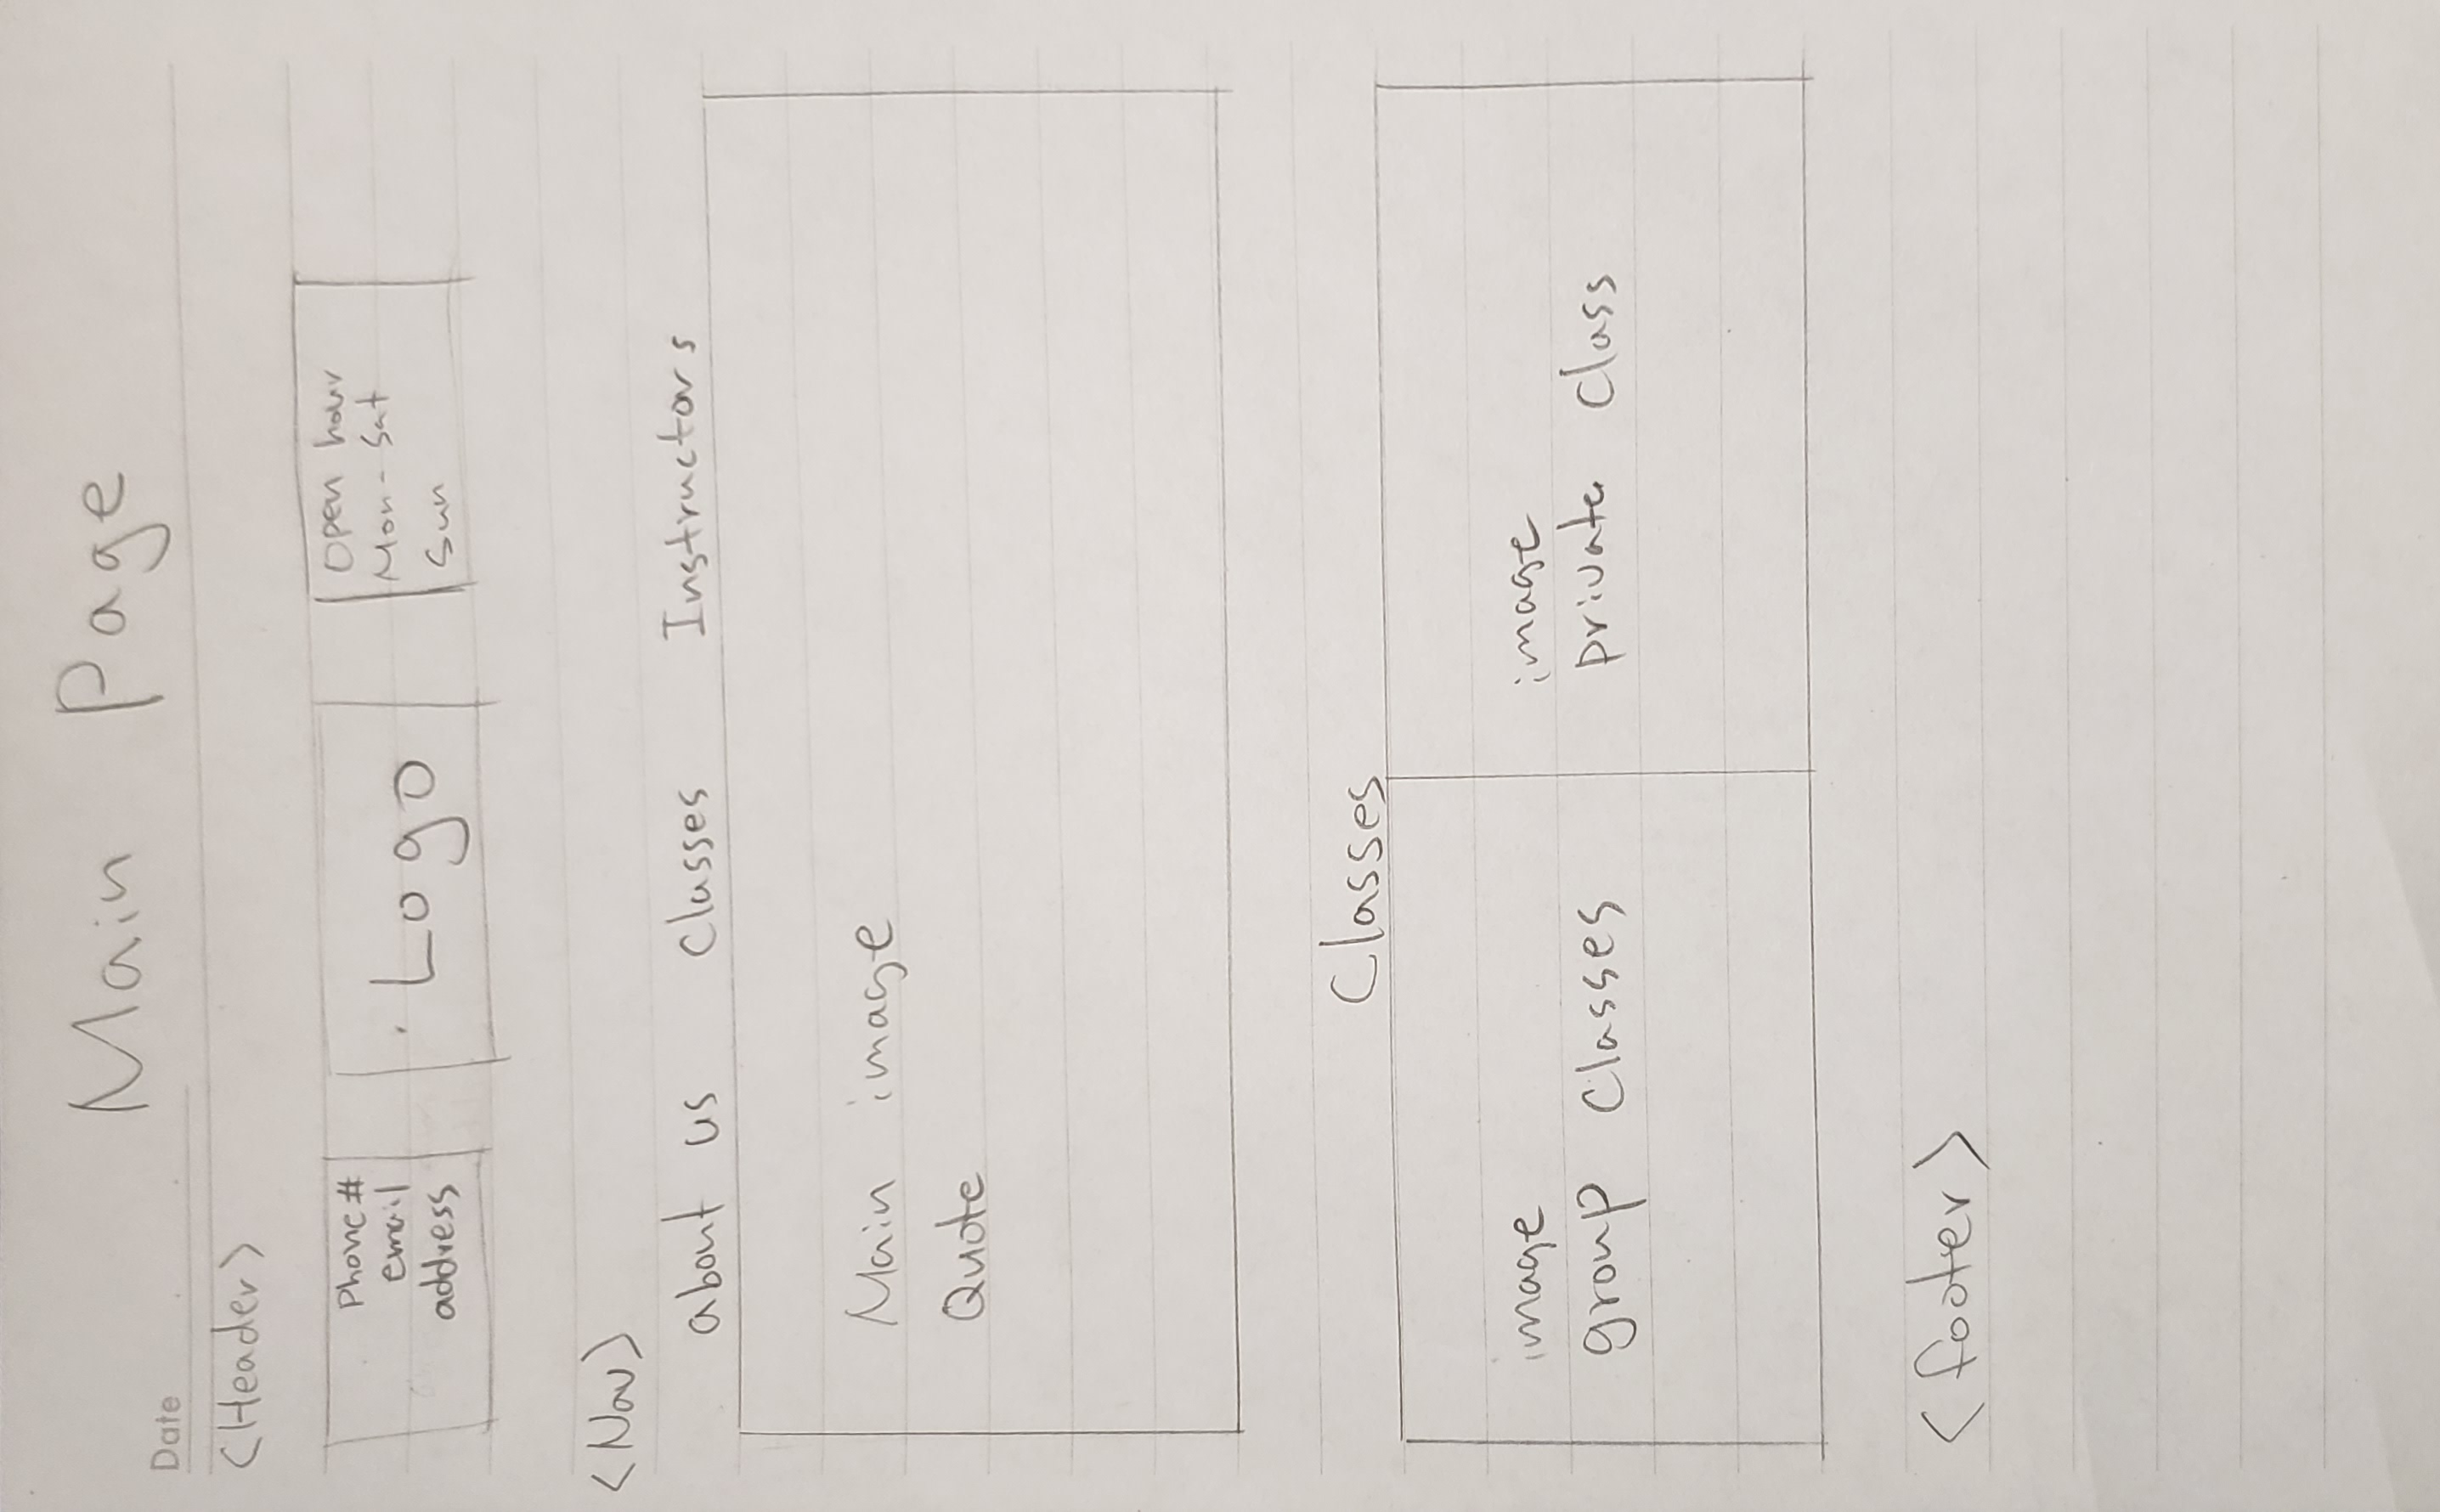 Main Page
Date
<Header>
Phone#
email
address
Logo
Open hour
Mon-Sat
Sun
<Nav>
about us Classes Instructors
Main image
Quote
Classes
image
group Classes
image
private Class
<footer>